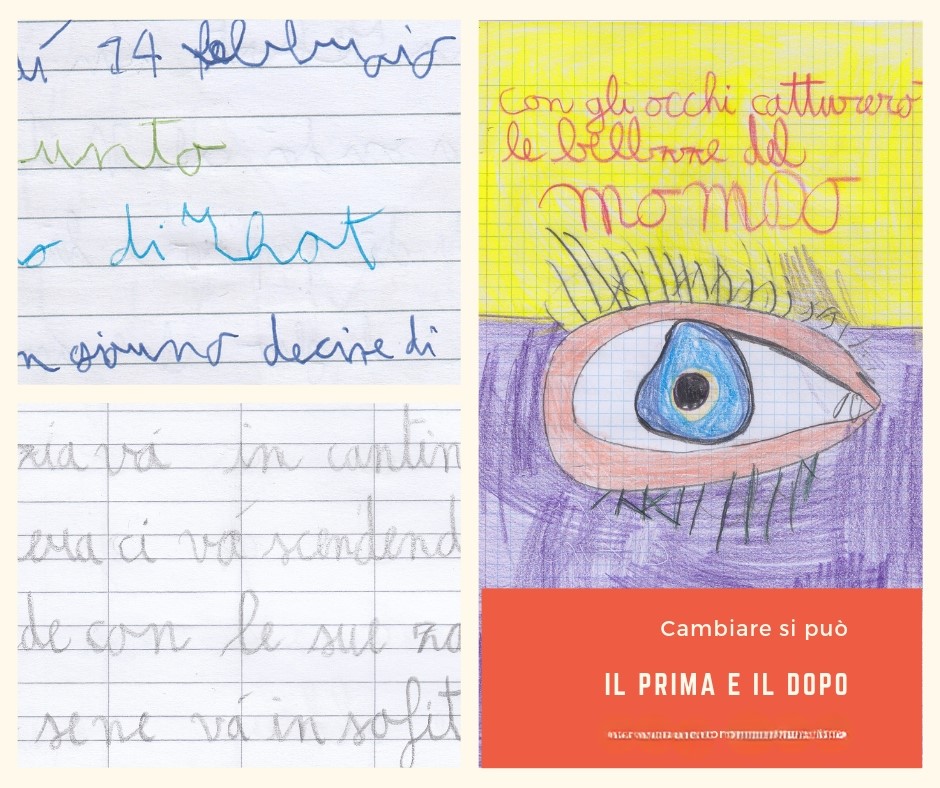 14 febbraio
unto
o di Ghat
n giorno decise di
zia vá in cantin
era ci vá scendend
de con le sue zo
sene vá in sofit
con gli occhi catturerò
le bellezze del
MOMDO
Cambiare si può
IL PRIMA E IL DOPO